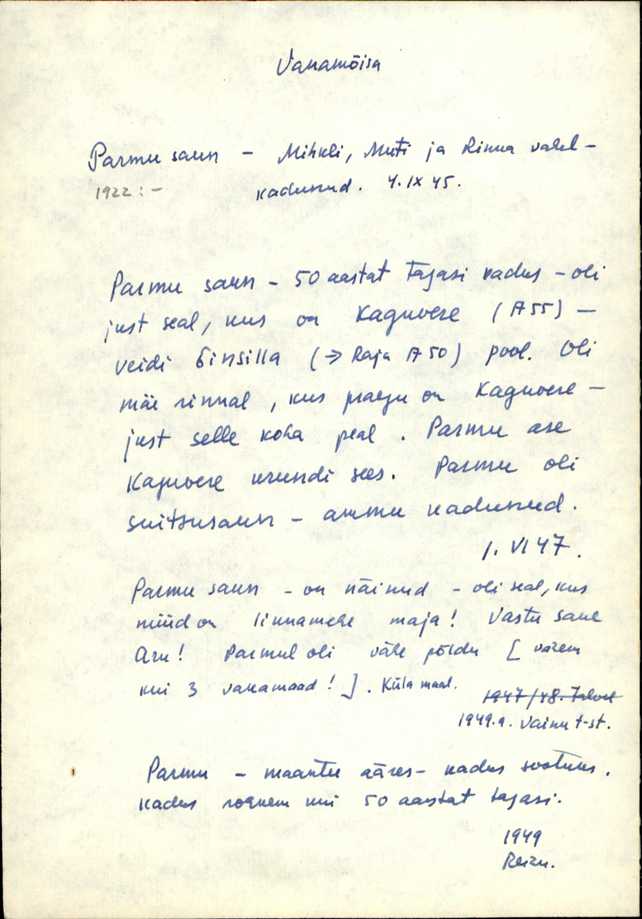 Vanamõisa
Parmu saun – Mihkli, Muti ja Rinna vahel –
1922: – kadunud. 4. IX 45.
Parmu saun – 50 aastat tagasi kadus – oli
just seal, kus on Kaguvere (A 55) –
veidi Sinsilla (→ Raja A 50) pool. Oli
mäe rinnal, kus praegu on Kaguvere –
just selle koha peal. Parmu ase
Kaguvere krundi sees. Parmu oli
suitsusaun – ammu kadunud.
1. VI 47.
Parmu saun – on näinud – oli seal, kus
nüüd on linnamehe maja! Vastu saue
Aru! Parmul oli vähe põldu [ vähem
kui 3 vakamaad! ]. Küla maal.
1947/48.
1949. a. Vainu t-st.
Parmu – maantee ääres – kadus sootuks.
Kadus rohkem kui 50 aastat tagasi.
1949